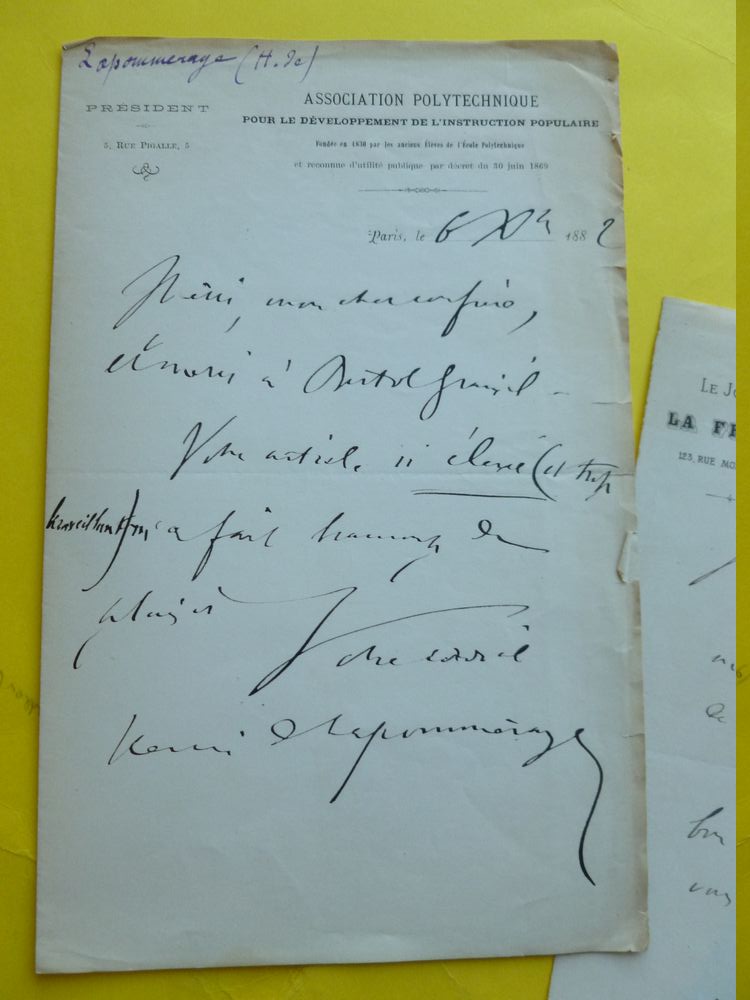 Lapommeraye (H. de)
PRÉSIDENT
5, RUE PIGALLE, 5
ASSOCIATION POLYTECHNIQUE
POUR LE DÉVELOPPEMENT DE L'INSTRUCTION POPULAIRE
Fondée en 1830 par les anciens Élèves de l'École Polytechnique
et reconnue d'utilité publique par décret du 30 juin 1869
Paris, le 6 Xbre 1882
Merci, mon cher confrère,
et merci à
Votre article si élevé (et trop
bienveillant) m'a fait beaucoup de
plaisir
Votre cordial
Henri de Lapommeraye
LE JO
LA FR
123, RUE MO
de
bon
vous